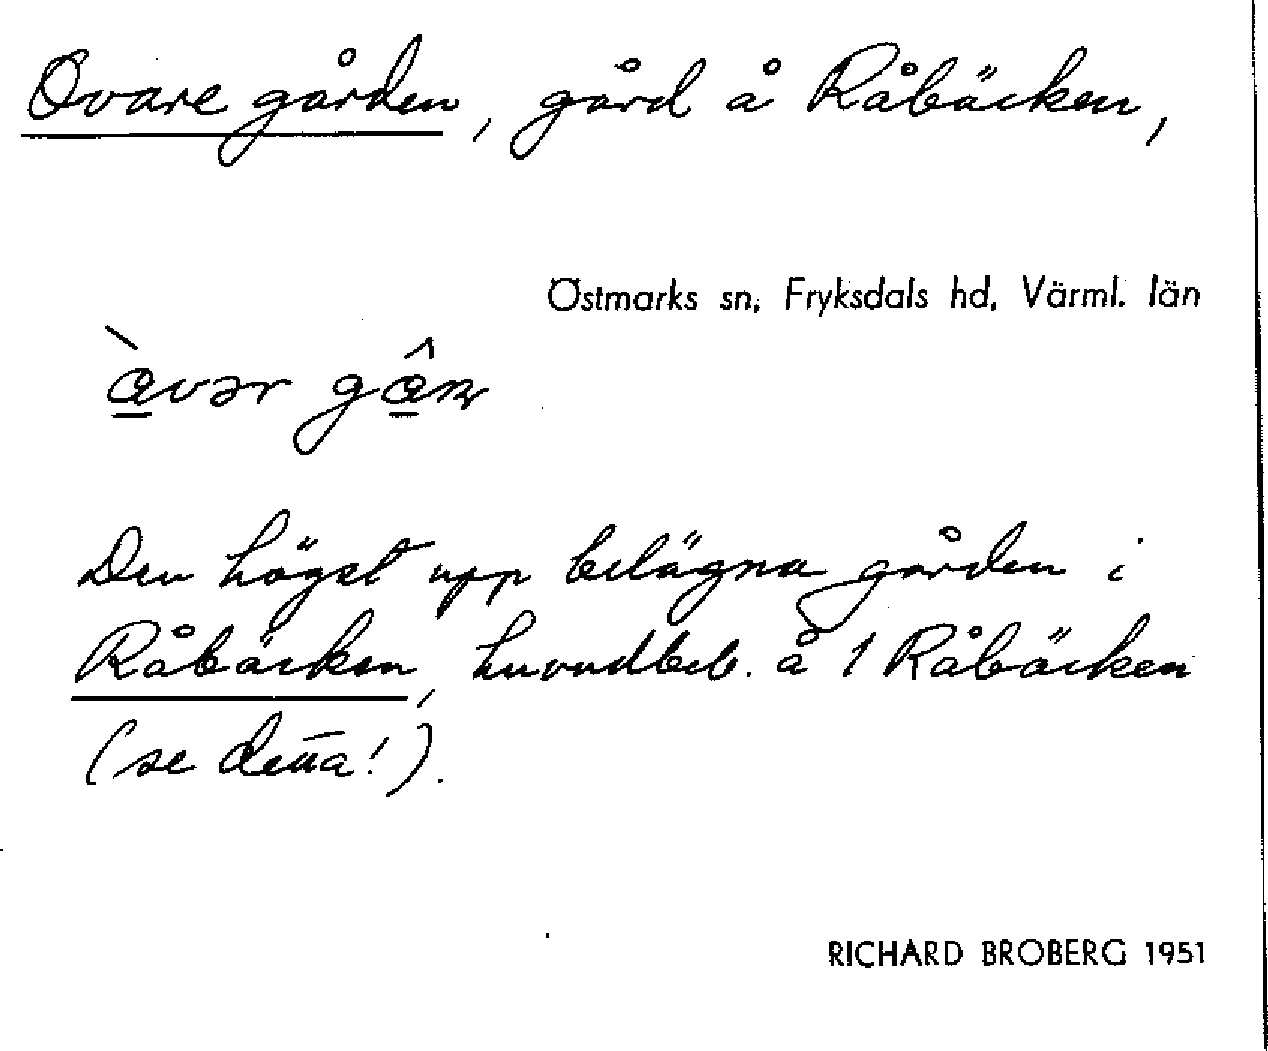 Ovare gården, gård å Råbäcken,
Östmarks sn, Fryksdals hd, Värml. län
àvər gân
Den högst upp belägna gården i
Råbäcken, huvudbeb. å 1 Råbäcken
(se detta!).
RICHARD BROBERG 1951